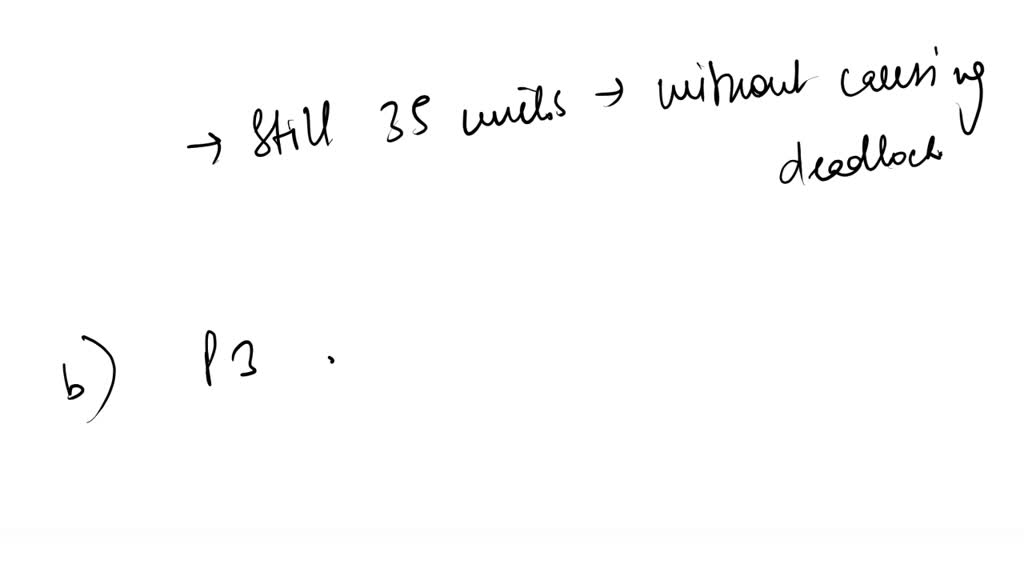 → Still 35 units → without causing
deadlock
b) P3 .